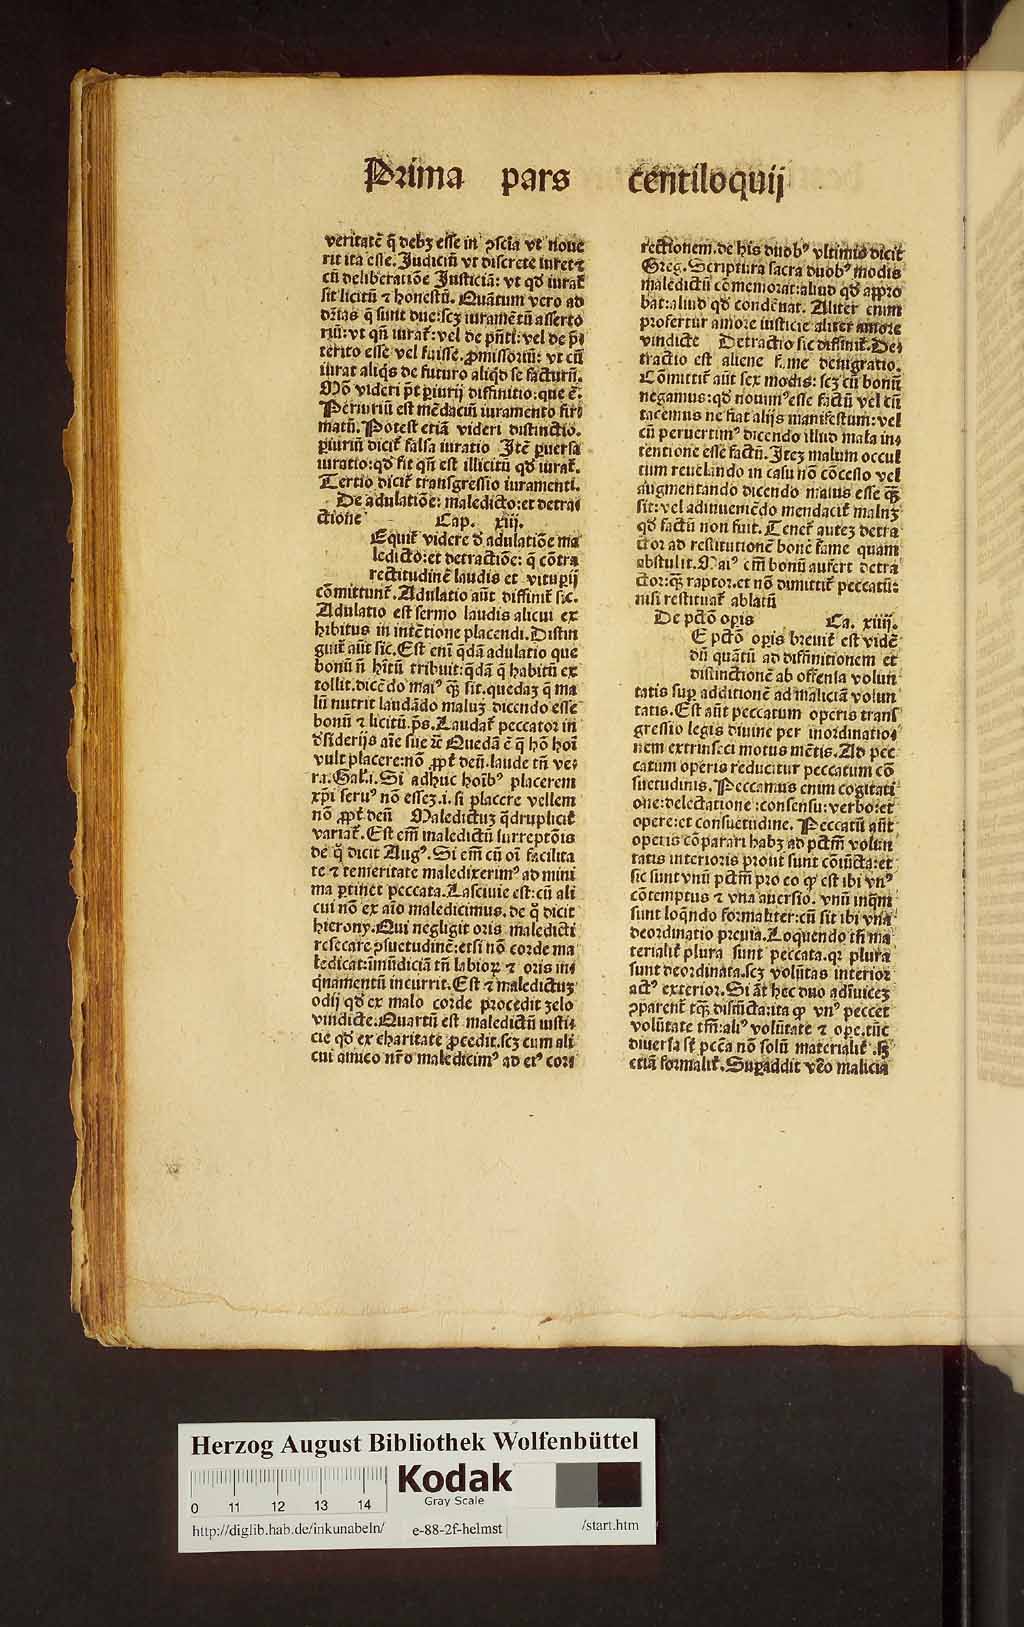 Prima pars centiloquij
veritatē q̄ debꝫ esse in ꝯscia vt noue
rit ita esse. Judiciū vt discrete iuret ⁊
cū deliberatiōe Iusticiā: vt qd̓ iurat̉
sit licitū ⁊ honestū. Quātum vero ad
dr̄ias q̄ sunt due: scꝫ iuramētū asserto
riū: vt qn̄ iurat̉: vel de pn̄ti: vel de p̄
terito esse vel fuisse. ꝓmissoriū: vt cū
iurat aliq̇s de futuro aliqd̓ se facturū.
Mō videri pt̄ ꝑiurij diffinitio: que ē:
Periuriū est mēdaciū iuramento fir
matū. Potest etiā videri distinctio.
ꝑiuriū dicit̉ falsa iuratio Itē ꝑuersa
iuratio: qd̓ fit qn̄ est illicitū qd̓ iurat̉.
Tertio dicit̉ transgressio iuramenti.
De adulatiōe: maledicto: et detra
ctione Cap. xiij.
Equit̉ videre d̓ adulatiōe ma
ledicto: et detractiōe: q̄ cōtra
rectitudinē laudis et vituꝑij
cōmittunt̉. Adulatio aūt diffinit̉ sic.
Adulatio est sermo laudis alicui ex
hibitus in intētione placendi. Distin
guit̉ aūt sic. Est eni q̄dā adulatio que
bonū n̄ hr̄tū tribuit: q̄dā q̄ habitū ex
tollit. dicēdo maiꝰ qꝫ sit. quedaꝫ q̄ ma
lū nutrit laudādo maluꝫ dicendo esse
bonū ⁊ licitū. p̄s. Laudat̉ peccator in
d̓siderijs aīe sue ⁊c̄ Quedā ē q̄ hō hoī
vult placere: nō ꝓpt̉ deū. laude tn̄ ve
ra. Gal. i. Si adhuc hoībꝰ placerem
xp̄i seruꝰ nō esseꝫ. i. si placere vellem
nō ꝓpt̉ deū Maledictuꝫ q̄druplicit̉
variat̉. Est em̄ maledictū surreptōis
de q̊ dicit Augꝰ. Si em̄ cū oī facilita
te ⁊ temeritate maledixerimꝰ ad mini
ma ꝑtinet peccata. Lasciuie est: cū ali
cui nō ex aīo maledicimus. de q̊ dicit
hierony. Qui negligit oris maledicti
resecare ꝯsuetudinē: etsi nō corde ma
ledicat: īmūdiciā tn̄ labioꝝ ⁊ oris in
q̇namentū incurrit. Est ⁊ maledictuꝫ
odij qd̓ ex malo corde procedit zelo
vindicte. Quartū est maledictū iusti
cie qd̓ ex charitate ꝓcedit. scꝫ cum ali
cui amico nr̄o maledicimꝰ ad eiꝰ cor
rectionem. de his duobꝰ vltimis dicit
Greg. Scriptura sacra duobꝰ modis
maledictū cōmemorat: aliud qd̓ appro
bat: aliud qd̓ condēnat. Aliter enim
profertur amore iusticie aliter amore
vindicte Detractio sic diffinit̉. De
tractio est aliene fame denigratio.
Cōmittit̉ aūt sex modis: scꝫ cū bonū
negamus: qd̓ nouimꝰ esse factū vel cū
tacemus ne fiat alijs manifestum: vel
cū peruertimꝰ dicendo illud mala in
tentione esse factū. Iteꝫ malum occul
tum reuelando in casu nō cōcesso vel
augmentando dicendo maius esse qꝫ
sit: vel adinueniēdo mendacit̉ malūꝫ
qd̓ factū non fuit. Tenet̉ auteꝫ detra
ctor ad restitutionē bone fame quam
abstulit. Maiꝰ em̄ bonū aufert detra
ctor: qꝫ raptor. et nō dimittit̉ peccatū:
nisi restituat̉ ablatū
De pctō oꝑis Ca. xiiij.
E pctō oꝑis breuit̉ est vidē
dū quātū ad diffinitionem et
distinctionē ab offensa volun
tatis suꝑ additionē ad maliciā volun
tatis. Est aūt peccatum operis trans
gressio legis diuine per inordinatio
nem extrinseci motus mētis. Ad pec
catum operis reducitur peccatum cō
suetudinis. Peccamus enim cogitati
one: delectatione: consensu: verbo: et
opere: et consuetudine. Peccatū aūt
operis cōparari habꝫ ad pctm̄ volun
tatis interioris prout sunt cōiūcta: et
sic sunt vnū pctm̄ pro eo ꝙ est ibi vnꝰ
cōtemptus ⁊ vna auersio. vnū inqm̄
sunt loq̄ndo formaliter: cū sit ibi vna
deordinatio preuia. Loquendo tn̄ ma
terialit̉ plura sunt peccata. qꝛ plura
sunt deordinata. scꝫ volūtas interior
actꝰ exterior. Si āt hec duo adīuiceꝫ
ꝯparent̉ tqꝫ disiūcta: ita ꝙ vnꝰ peccet
volūtate tm̄: aliꝰ volūtate ⁊ oꝑe. tūc
diuersa st̄ pctā nō solū materialit̉. sꝫ
etiā formalit̉. Suꝑaddit v̓o malicia
Herzog August Bibliothek Wolfenbüttel
0 11 12 13 14
Kodak
Gray Scale
http://diglib.hab.de/inkunabeln/ e-88-2f-helmst /start.htm